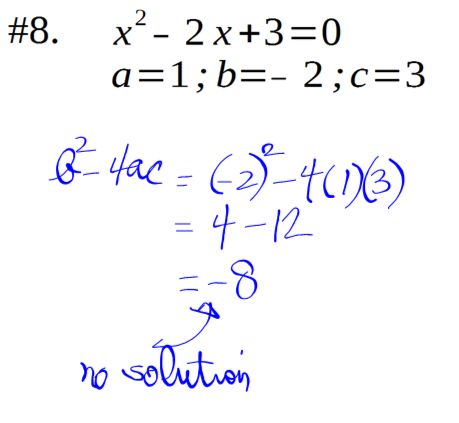 #8. x² – 2x+3=0
a=1; b=– 2; c=3
b² – 4ac = (-2)² – 4(1)(3)
= 4 – 12
= -8
no solution